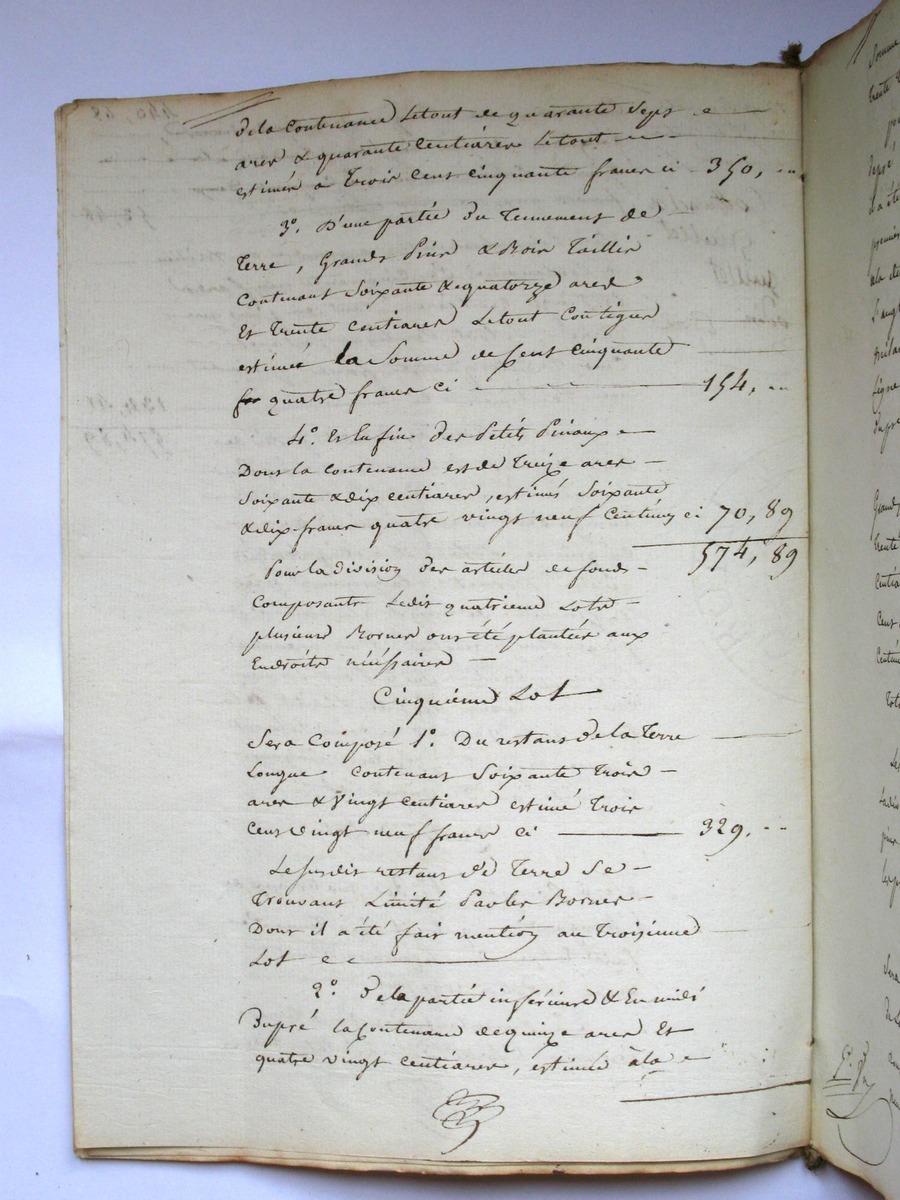 de la Contenance Letout de quarante Sept
ares & quarante Centiares Letout
estimés a Trois Cent Cinquante francs ci - 350, "
3°. D'une partie du Tennement de
Terre, Grands Pins & Bois Taillis
Contenant Soixante & quatorze ares
Et Trente Centiares Letout Contigus
estimée la Somme de Cent Cinquante
quatre francs ci 154, "
4°. Et Enfin des Petits Pinaux
Dont la Contenance est de Treize ares
Soixante & dix Centiares, estimés Soixante
& dix francs quatre vingt neuf Centimes ci 70, 89
574, 89
Pour la division des articles de fonds
Composants Ledit quatrieme Lots
plusieurs Bornes ont été plantées aux
Endroits nécéssaires
Cinquiéme Lot
Sera Composé 1°. Du restant de la Terre
Longue Contenant Soixante Trois
ares & Vingt Centiares estimé Trois
Cent vingt neuf francs ci 329, "
Le susdit restant de Terre Se
Trouvant Limité Par les Bornes
Dont il a été fait mention au Troisieme
Lot
2°. de la partie inférieure & En midi
Dupré la Contenance de quinze ares Et
quatre vingt Centiares, estimée à la